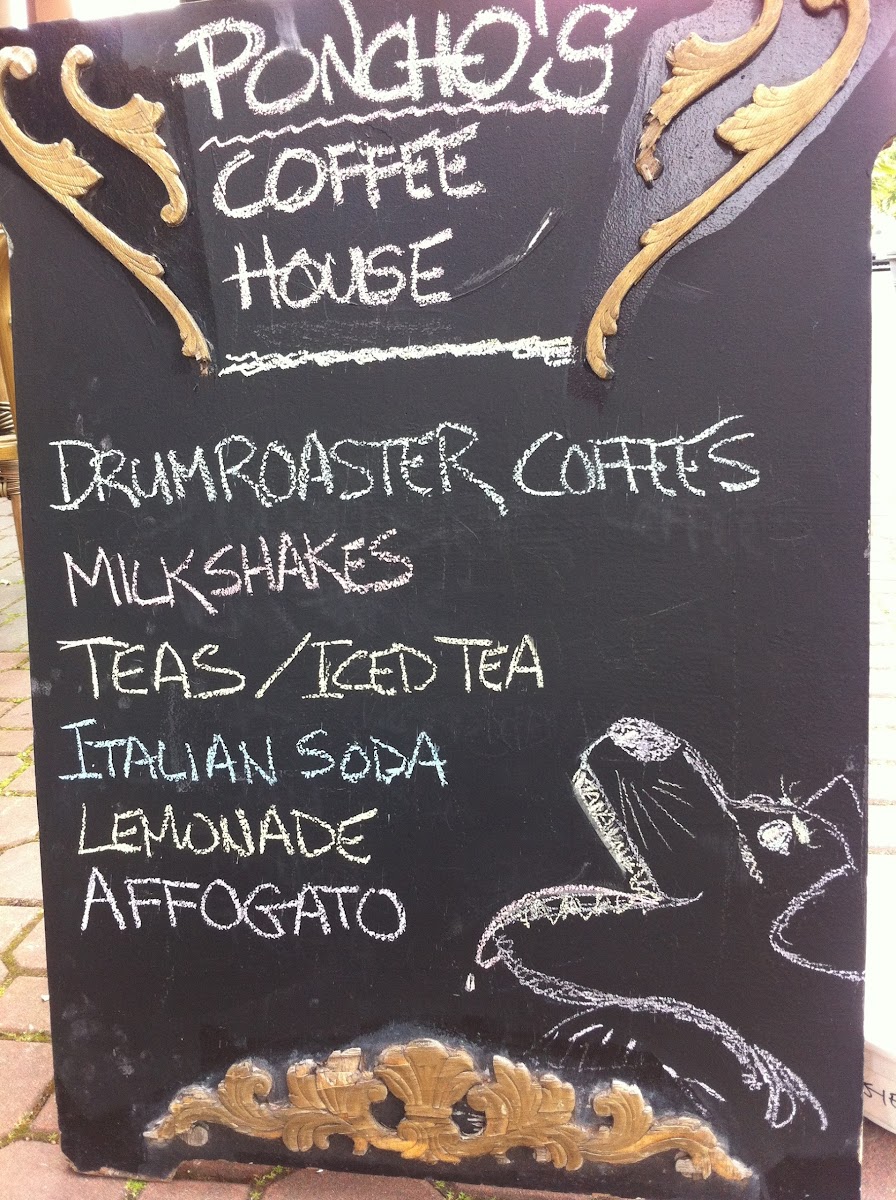 PONCHO'S
COFFEE
HOUSE
DRUMROASTER COFFEES
MILKSHAKES
TEAS / ICED TEA
ITALIAN SODA
LEMONADE
AFFOGATO